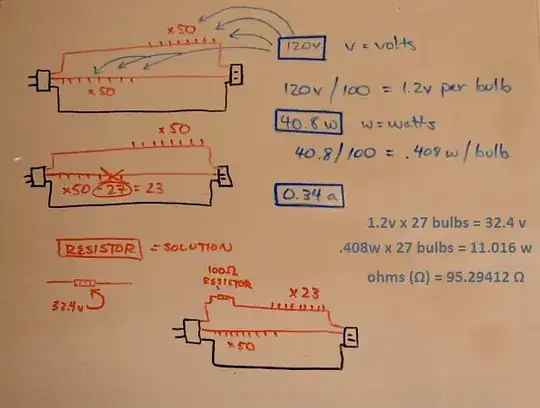 x50
120v
v = volts
x50
120v / 100 = 1.2v per bulb
40.8 w
w = watts
x50
40.8/100 = .408 w / bulb
x50 -27 = 23
0.34 a
1.2v x 27 bulbs = 32.4 v
.408w x 27 bulbs = 11.016 w
ohms (Ω) = 95.29412 Ω
RESISTOR = SOLUTION
32.4v
100Ω
RESISTOR
x 23
x50